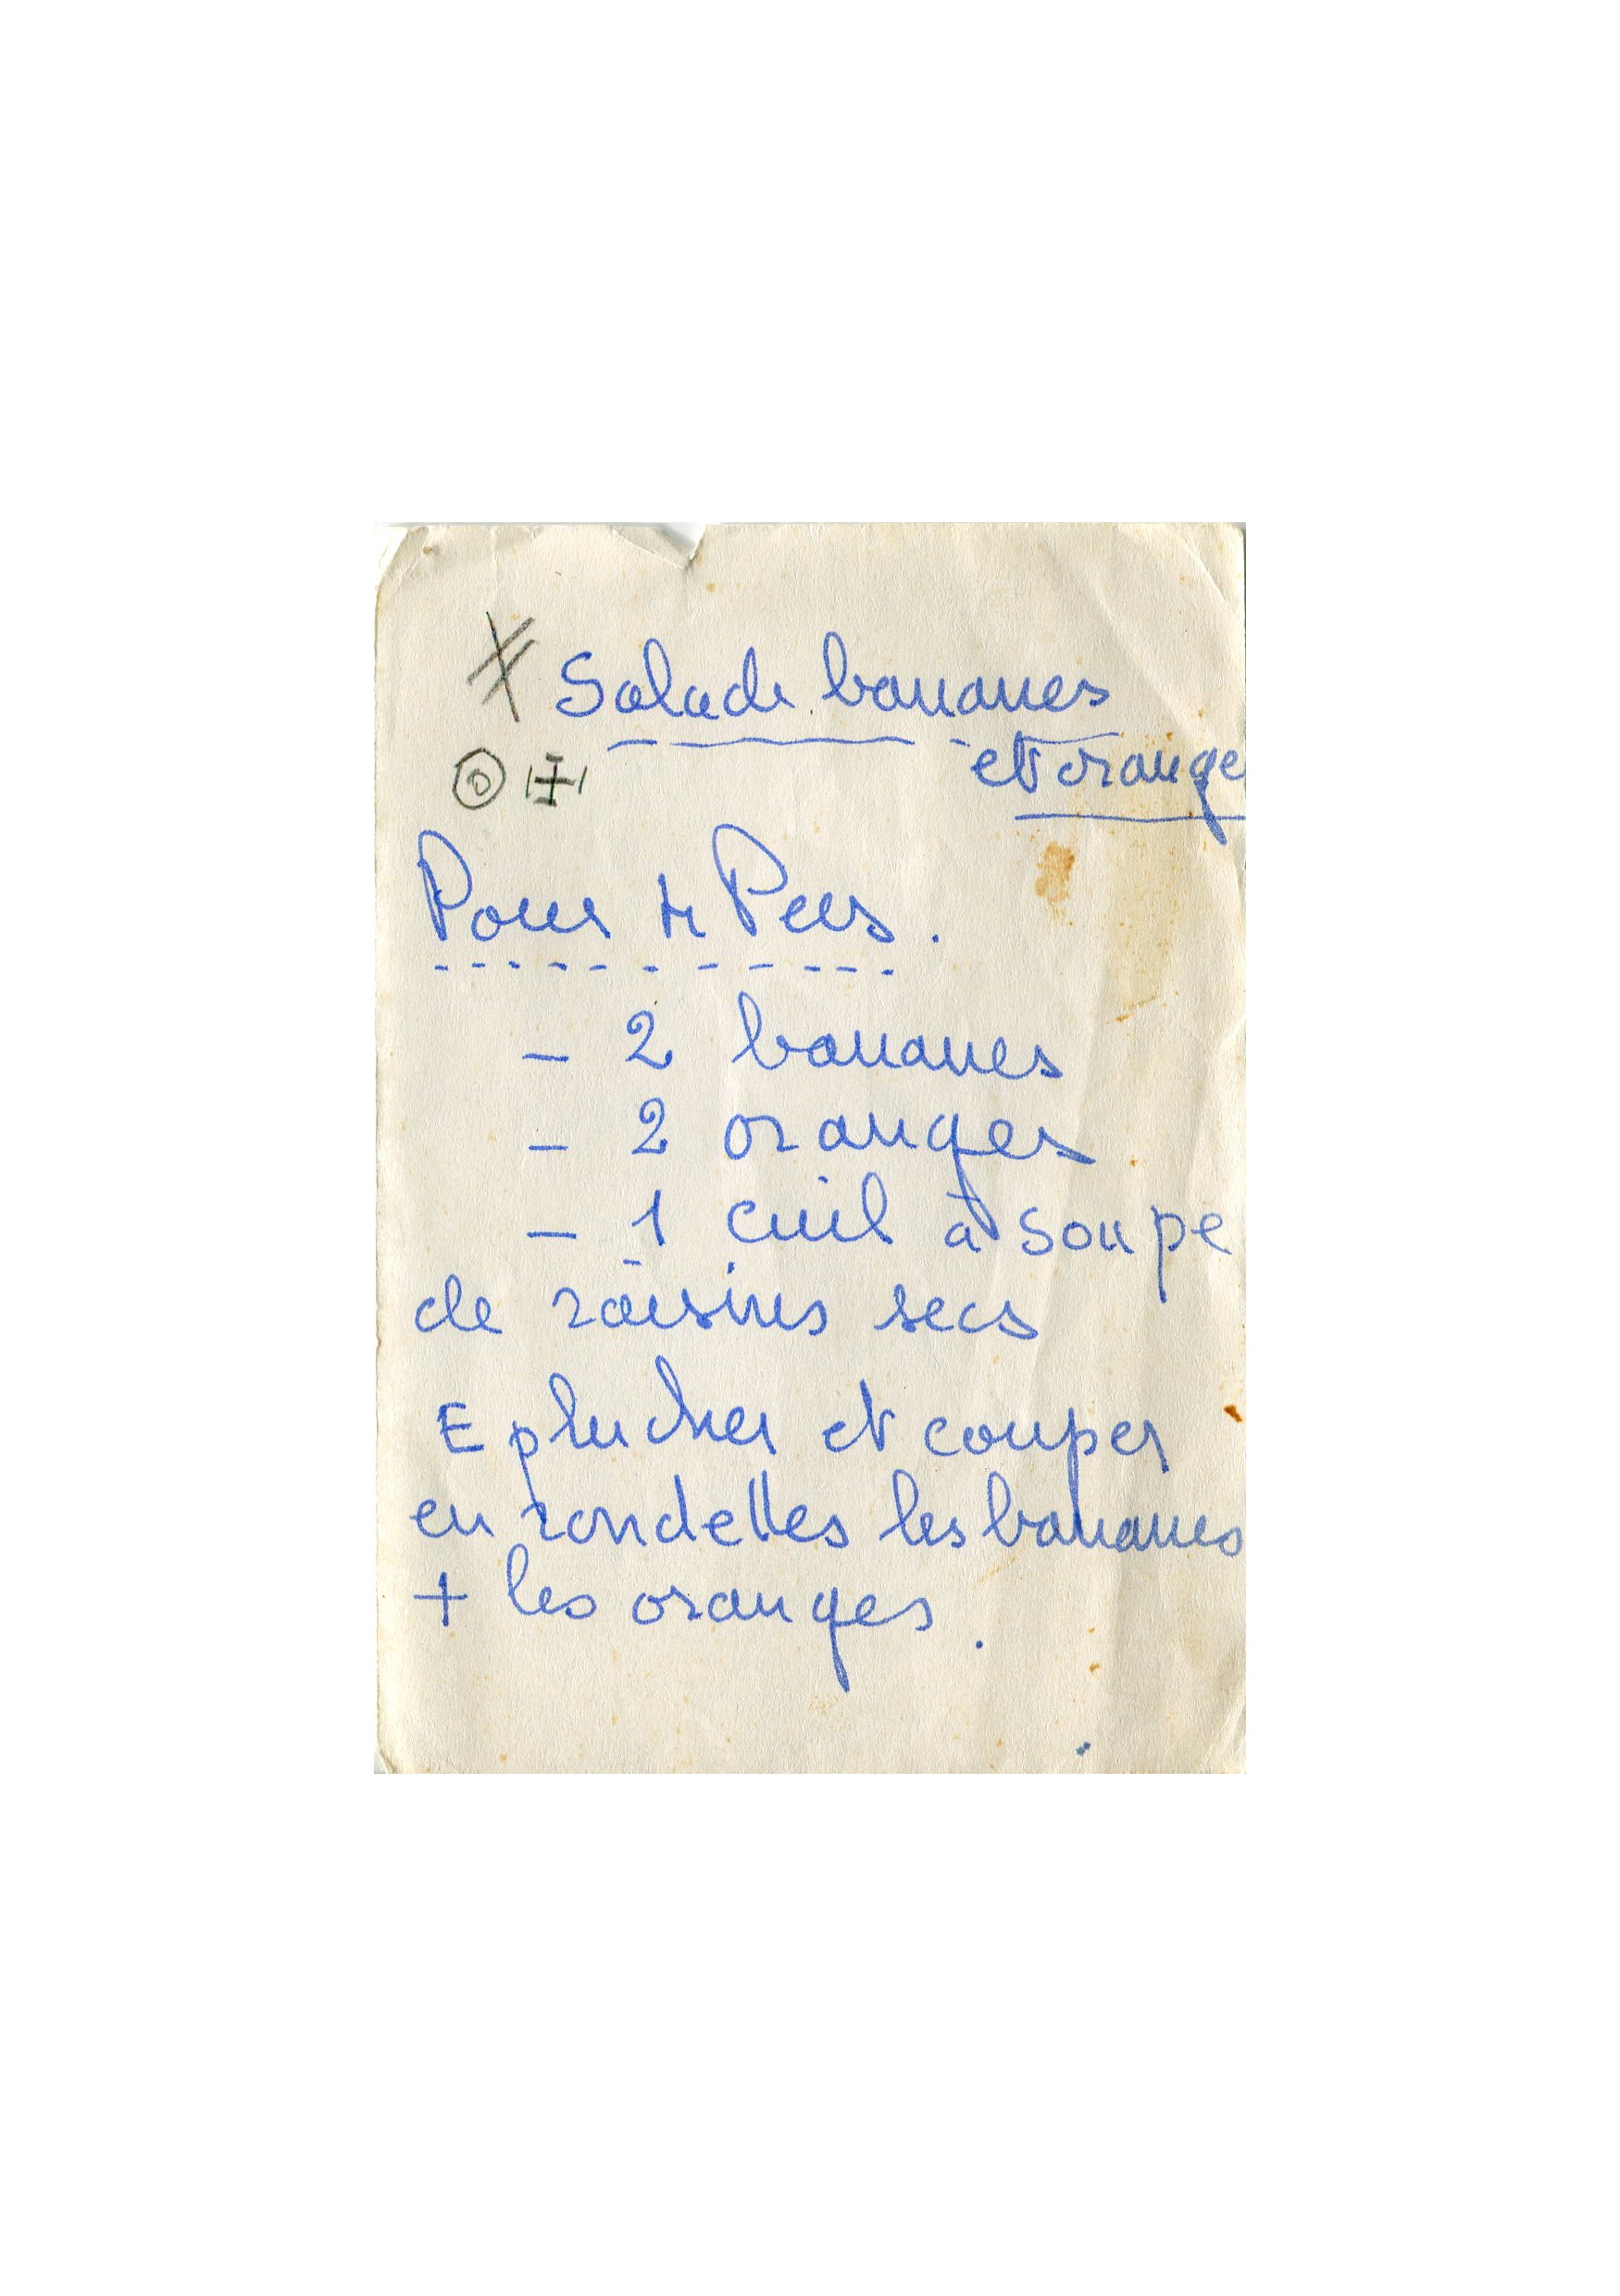 Salade bananes
et orange
Pour 4 Pers.
- 2 bananes
- 2 oranges
- 1 cuil à soupe
de raisins secs
Eplucher et couper
en rondelles les bananes
+ les oranges.